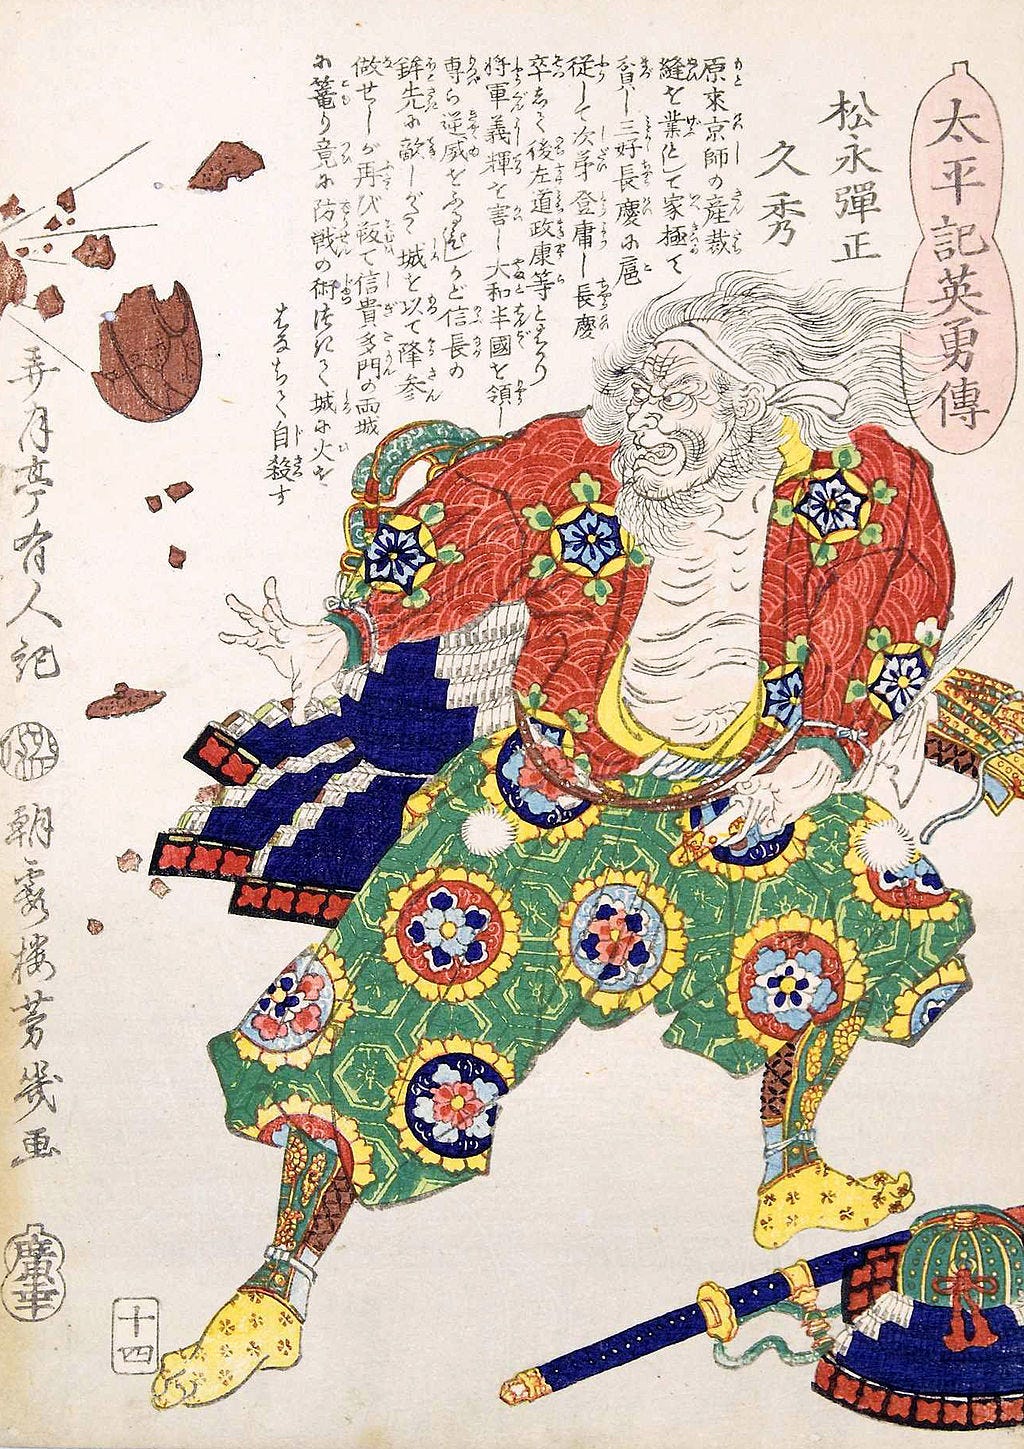 太平記英勇傳
松永彈正
久秀
原來京師の産裁
縫を業として家極て
貧し三好長慶に扈
従して次第登庸し長慶
卒して後左道政康等とはかり
将軍義輝を害し大和半國を領し
専ら逆威をふるひしかど信長の
鉾先に敵しがたく城を以て降参
做せしが再び殺て信貴多門の両城
に篭り竟に防戦の術つきて城に火を
はなちて自殺す
弄月亭有人記
朝霞楼芳幾画
廣華
十四